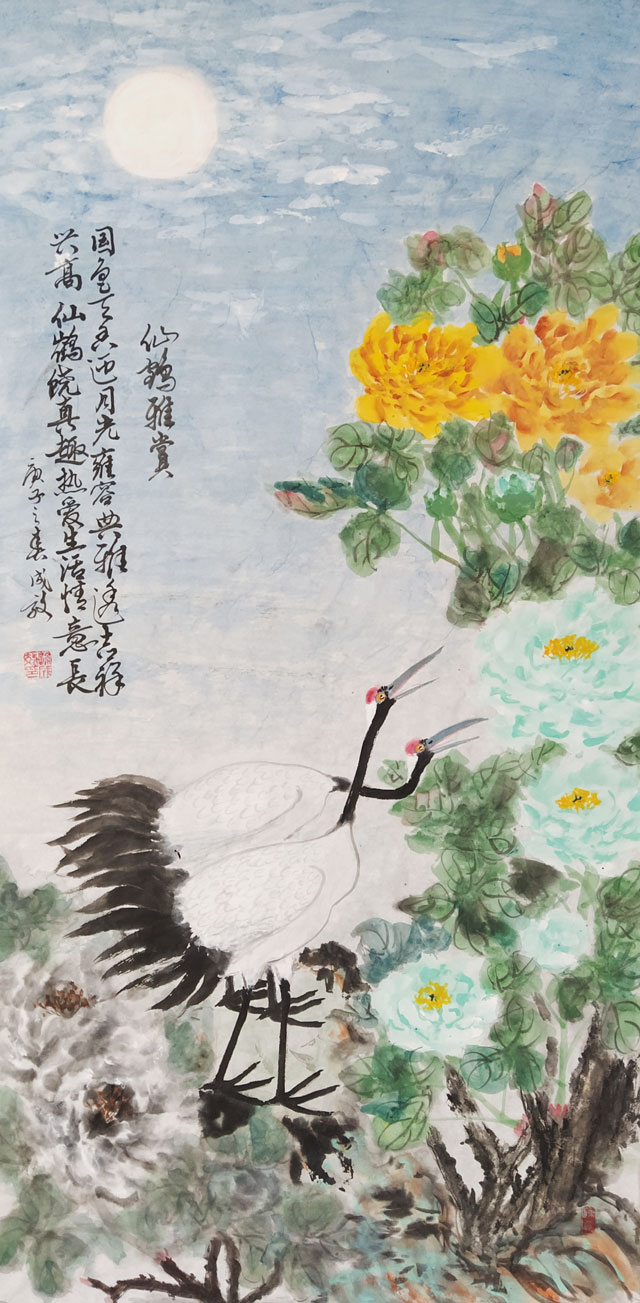 仙鹤雅赏
国色天香迎月光雍容典雅透吉祥
兴高仙鹤饶真趣热爱生活情意長
庚子之春成